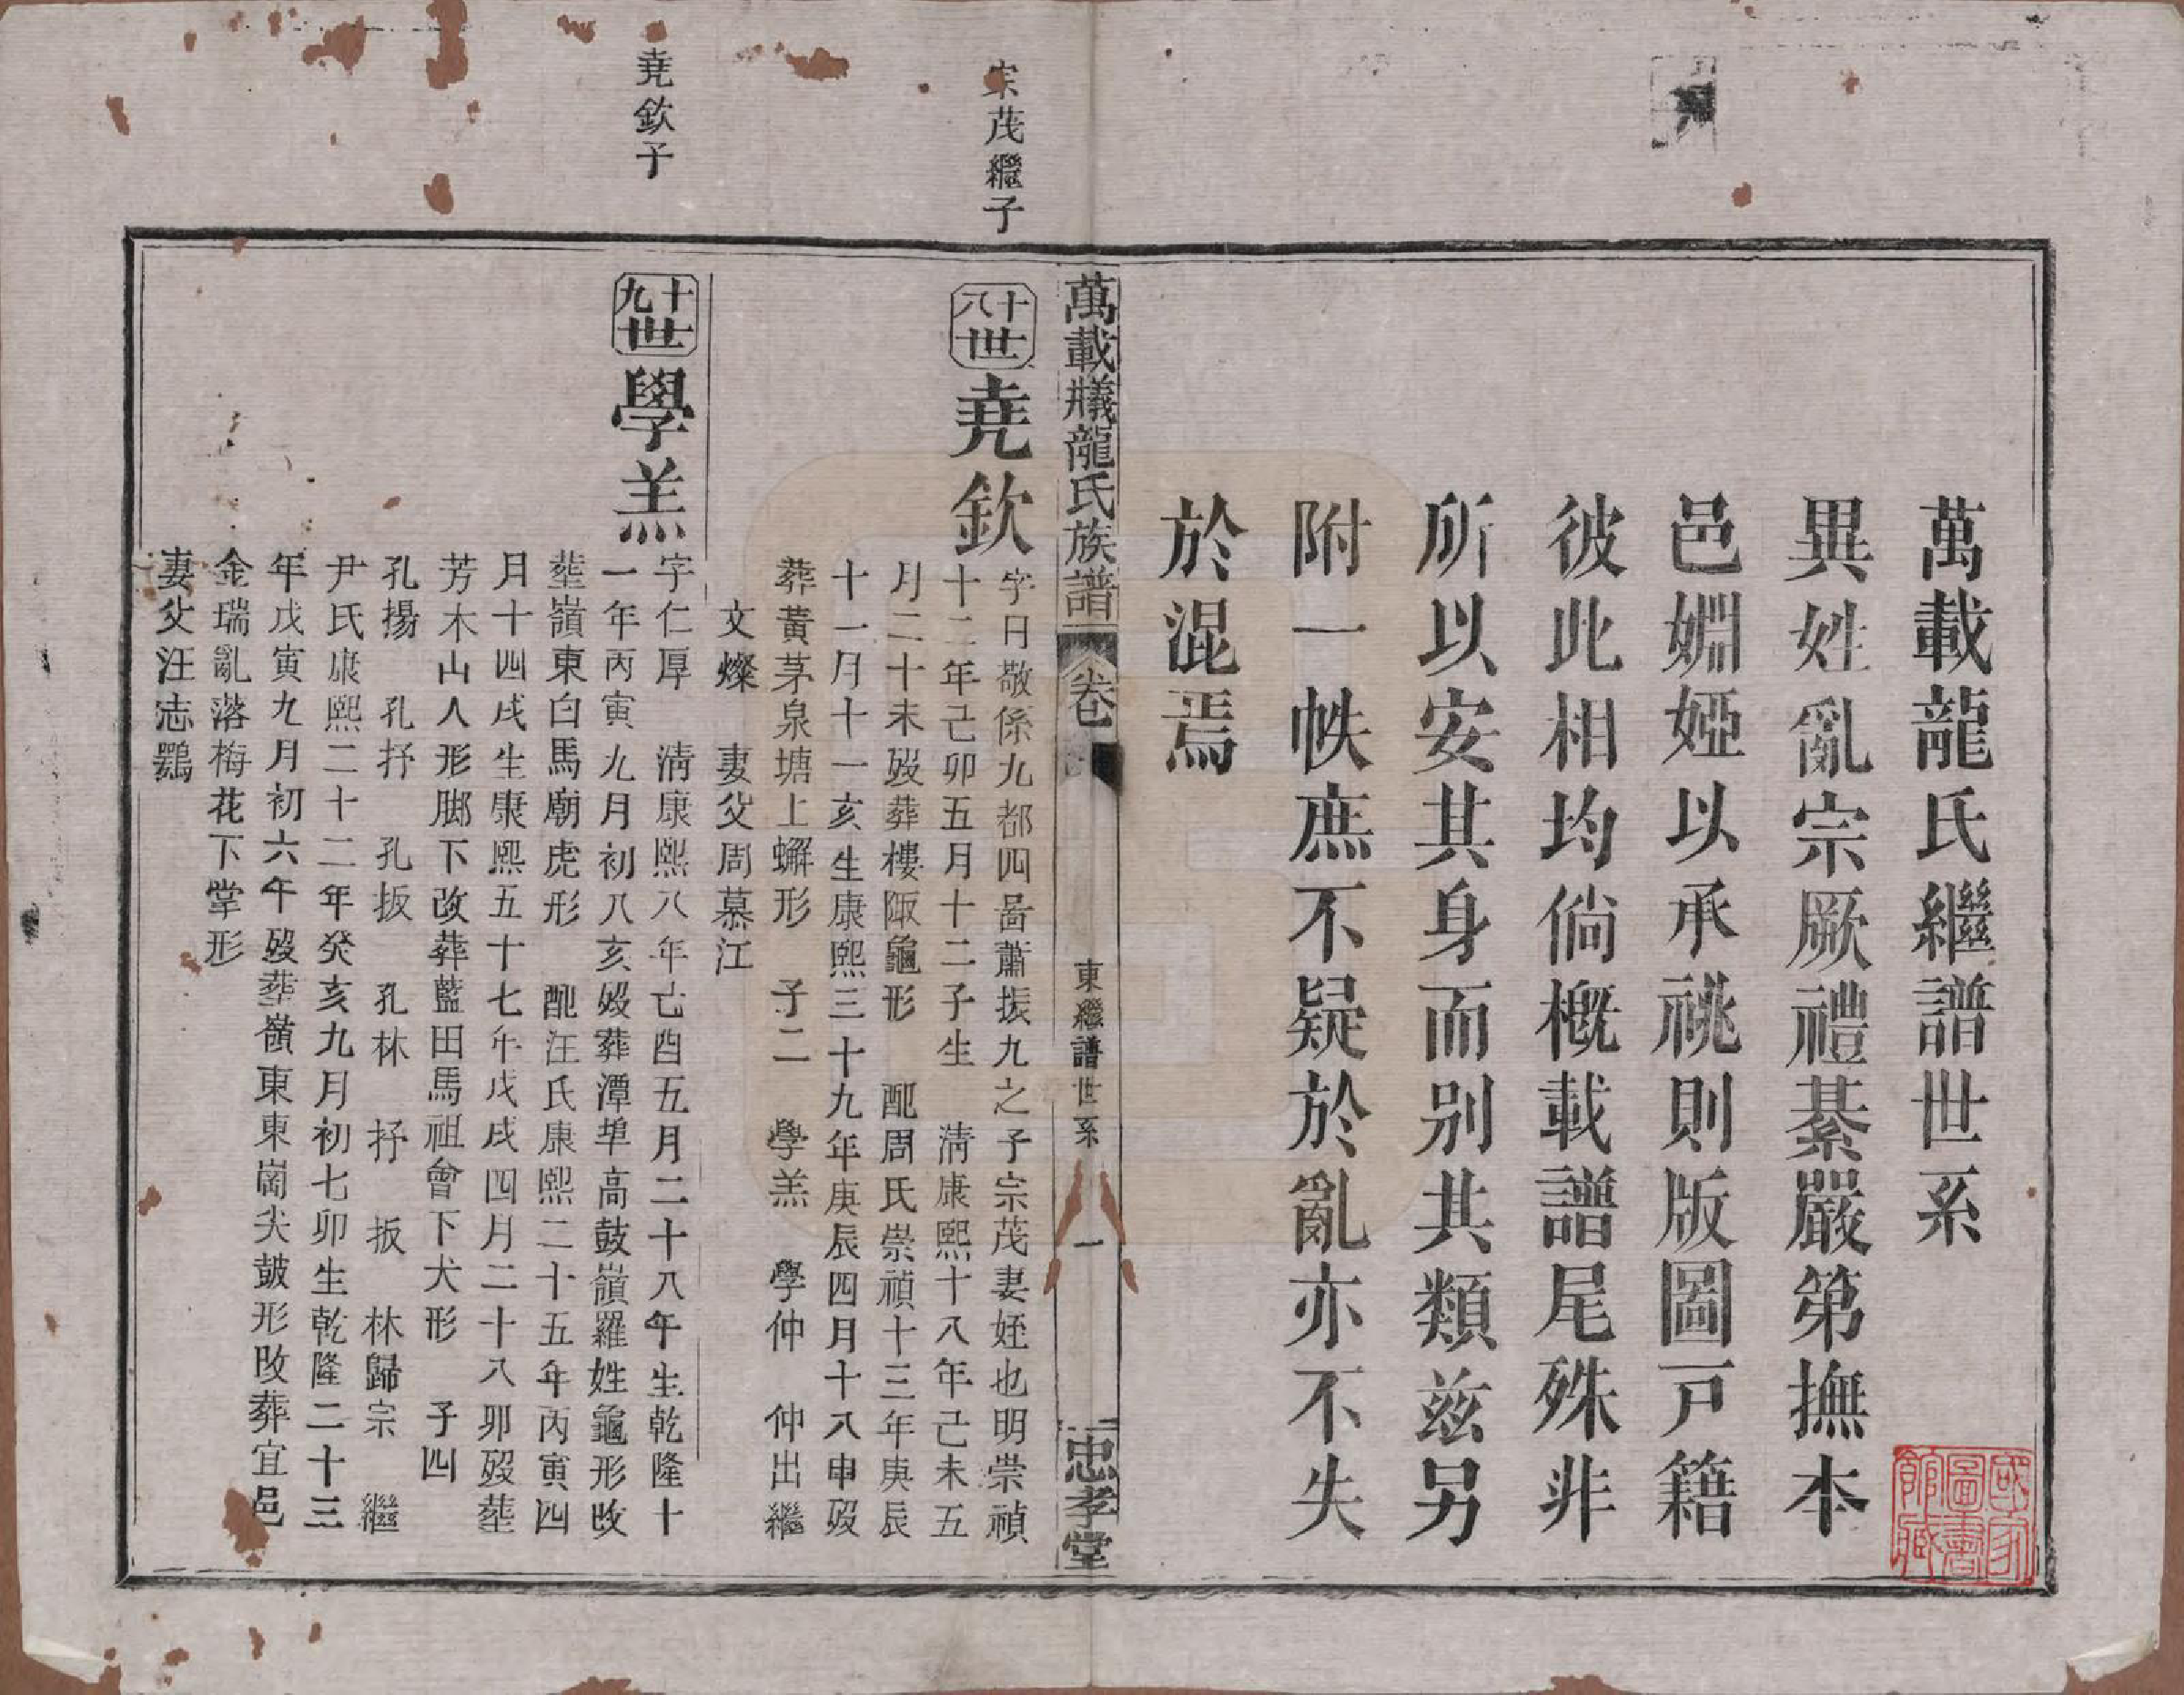 萬載龍氏繼譜世系
異姓亂宗厥禮綦嚴第撫本
邑婣婭以承祧則版圖戸籍
彼此相均倘概載譜尾殊非
所以安其身而别其類兹另
附一帙庶不疑於亂亦不失
於混焉
國家圖書館藏
萬載㸌龍氏族譜
卷
東繼譜世系
一
忠孝堂
宗茂繼子
十八世
堯欽
字日敬係九都四啚蕭振九之子宗茂妻姪也明崇禎
十二年己卯五月十二子生 清康熙十八年己未五
月二十未歿葬樓陬龜形 配周氏崇禎十三年庚辰
十一月十一亥生康熙三十九年庚辰四月十八申歿
葬黄茅泉塘上蠏形 子二 學羔 學仲 仲出繼
文燦 妻父周慕江
堯欽子
十九世
學羔
字仁厚 清康熙八年己酉五月二十八午生乾隆十
一年丙寅九月初八亥歿葬潭埠高鼓嶺羅姓龜形改
塟嶺東白馬廟虎形 配汪氏康熙二十五年丙寅四
月十四戌生康熙五十七年戊戌四月二十八卯歿塟
芳木山人形脚下改葬藍田馬祖會下犬形 子四
孔揚 孔抒 孔扳 孔林 抒 扳 林歸宗 繼
尹氏康熙二十二年癸亥九月初七卯生乾隆二十三
年戊寅九月初六午歿塟嶺東東崗尖皷形改葬宜邑
金瑞亂落梅花下掌形
妻父汪志鶚